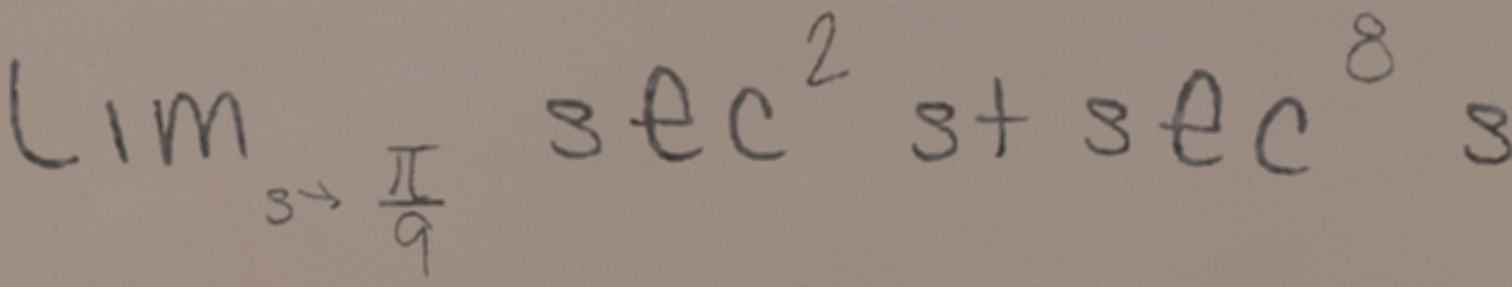 lim_{s→\frac{π}{9}} sec^2 s + sec^8 s